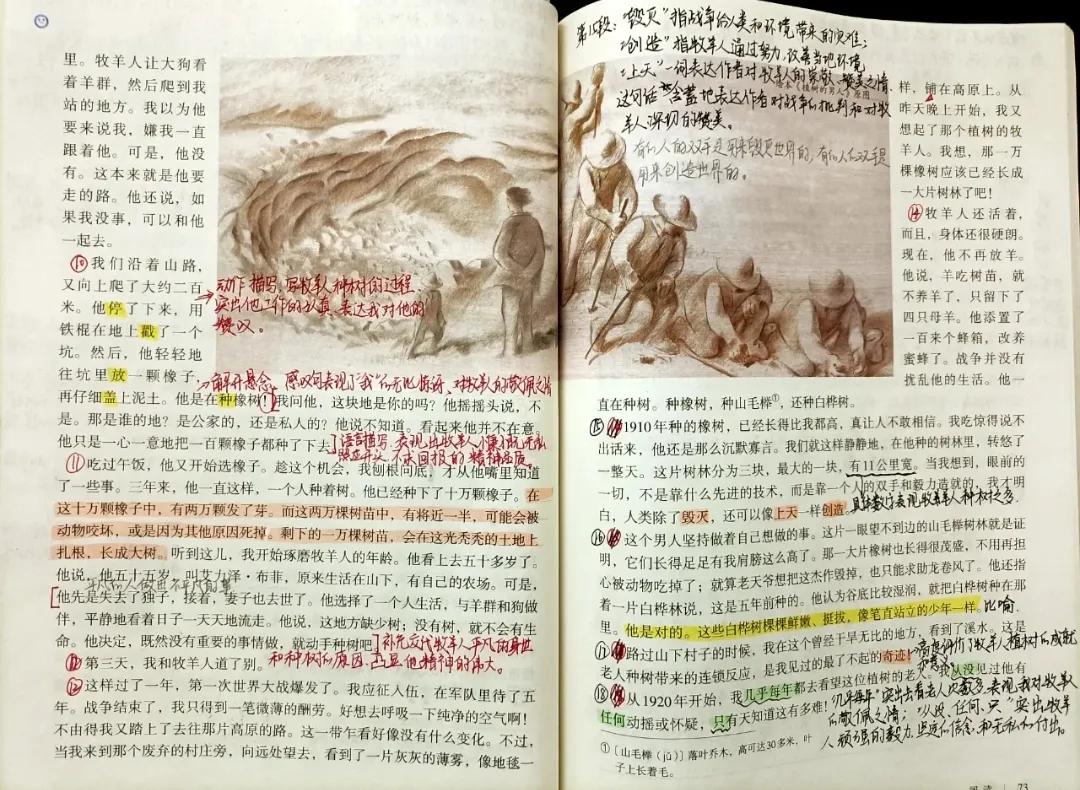 里。牧羊人让大狗看
着羊群，然后爬到我
站的地方。我以为他
要来说我，嫌我一直
跟着他。可是，他没
有。这本来就是他要
走的路。他还说，如
果我没事，可以和他
一起去。
⑩我们沿着山路，
又向上爬了大约二百
米。他停了下来，用
铁棍在地上戳了一个
坑。然后，他轻轻地
往坑里放一颗橡子，
再仔细盖上泥土。他是在种橡树！我问他，这块地是你的吗？他摇摇头说，不
是。那是谁的地？是公家的，还是私人的？他说不知道。看起来他并不在意。
他只是一心一意地把一百颗橡子都种了下去。
动作描写，写牧羊人种树的过程
突出他工作的认真，表达我对他的
赞叹。
解开悬念，感叹句表现了"我"的无比惊讶，对牧羊人的敬佩之情
语言描写，表现出牧羊人
不求回报的精神品质。
⑪吃过午饭，他又开始选橡子。趁这个机会，我刨根问底，才从他嘴里知道
了一些事。三年来，他一直这样，一个人种着树。他已经种下了十万颗橡子。在
这十万颗橡子中，有两万颗发了芽。而这两万棵树苗中，有将近一半，可能会被
动物咬坏，或是因为其他原因死掉。剩下的一万棵树苗，会在这光秃秃的土地上
扎根，长成大树。听到这儿，我开始琢磨牧羊人的年龄。他看上去五十多岁了。
他说，他五十五岁，叫艾力泽·布菲，原来生活在山下，有自己的农场。可是，
他先是失去了独子，接着，妻子也去世了。他选择了一个人生活，与羊群和狗做
伴，平静地看着日子一天天地流走。他说，这地方缺少树；没有树，就不会有生
命。他决定，既然没有重要的事情做，就动手种树吧。
补充交代牧羊人平凡的身世
和种树的原因，凸显他精神的伟大。
第三天，我和牧羊人道了别。
⑫这样过了一年，第一次世界大战爆发了。我应征入伍，在军队里待了五
年。战争结束了，我只得到一笔微薄的酬劳。好想去呼吸一下纯净的空气啊！
不由得我又踏上了去往那片高原的路。这一带乍看好像没有什么变化。不过，
当我来到那个废弃的村庄旁，向远处望去，看到了一片灰灰的薄雾，像地毯一
第15段："毁灭"指战争给人类和环境带来的灾难；
"创造"指牧羊人通过努力，改善当地环境
"上天"一词表达作者对牧羊人的崇敬、赞美之情
这句话含蓄地表达作者对战争的批判和对牧
羊人深切的赞美。
有的人的双手是用来毁灭世界的，有的人的双手是
用来创造世界的。
《植树的男人》原图
样，铺在高原上。从
昨天晚上开始，我又
想起了那个植树的牧
羊人。我想，那一万
棵橡树应该已经长成
一大片树林了吧！
⑭牧羊人还活着，
而且，身体还很硬朗。
现在，他不再放羊。
他说，羊吃树苗，就
不养羊了，只留下了
四只母羊。他添置了
一百来个蜂箱，改养
蜜蜂了。战争并没有
扰乱他的生活。他一
直在种树。种橡树，种山毛榉①，还种白桦树。
⑮1910年种的橡树，已经长得比我都高，真让人不敢相信。我吃惊得说不
出话来，他还是那么沉默寡言。我们就这样静静地，在他种的树林里，转悠了
一整天。这片树林分为三块，最大的一块，有11公里宽。当我想到，眼前的
一切，不是靠什么先进的技术，而是靠一个人的双手和毅力造就的，我才明
白，人类除了毁灭，还可以像上天一样创造。
具体数字表现牧羊人种树之多
⑯这个男人坚持做着自己想做的事。这片一眼望不到边的山毛榉树林就是证
明，它们长得足足有我肩膀这么高了。那一大片橡树也长得很茂盛，不用再担
心被动物吃掉了；就算老天爷想把这杰作毁掉，也只能求助龙卷风了。他还指
着一片白桦林说，这是五年前种的。他认为谷底比较湿润，就把白桦树种在那
里。他是对的。这些白桦树棵棵鲜嫩、挺拔，像笔直站立的少年一样。 比喻
⑰路过山下村子的时候，我在这个曾经干旱无比的地方，看到了溪水。这是
老人种树带来的连锁反应，是我见过的最了不起的奇迹！
高度评价了牧羊人植树的成就
和意义
⑱从1920年开始，我几乎每年都去看望这位植树的老人。我从没见过他有
任何动摇或怀疑，只有天知道这有多难！
"几乎每年"突出去看老人次数多，表现我对牧羊人
的敬佩之情；"从没、任何、只"突出牧羊
人顽强的毅力，坚定的信念，和无私的付出。
①〔山毛榉（jǔ）〕落叶乔木，高可达30多米，叶
子上长着毛。
阅读 73